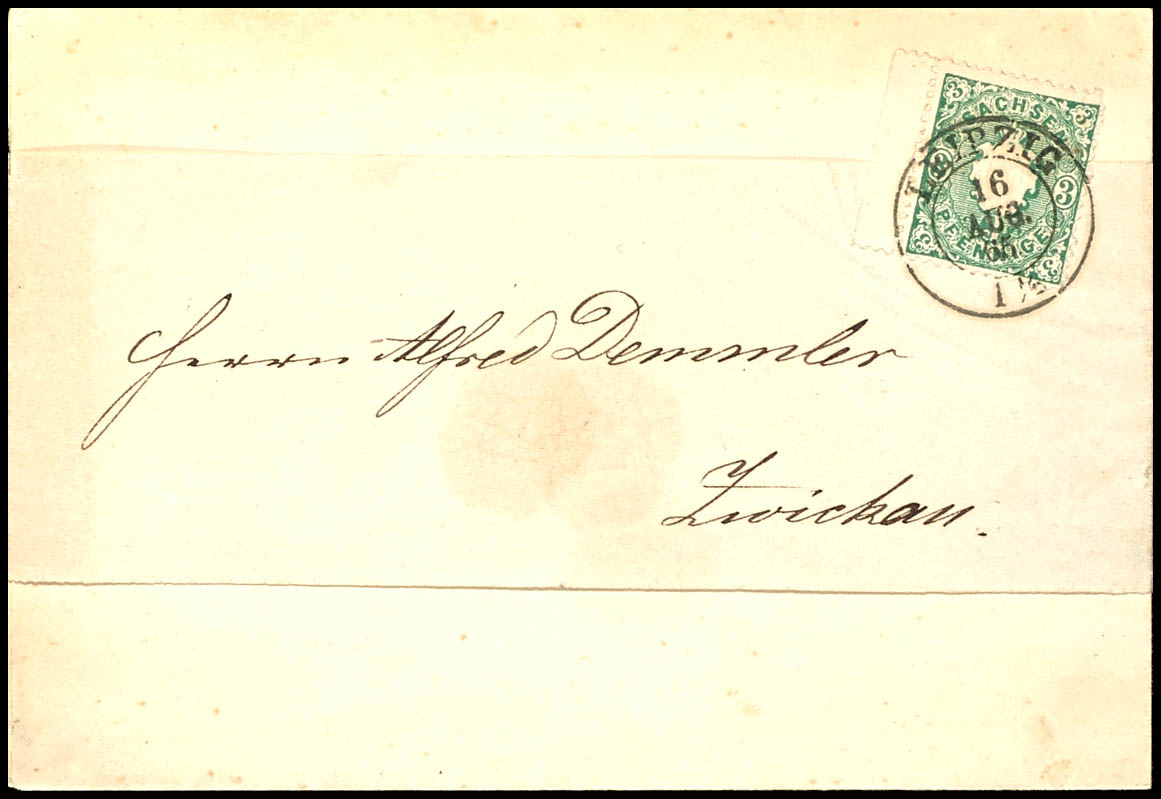 SACHSEN
3 3
3 3
PFENNIGE
3 3
LEIPZIG
16
AUG.
65
Herrn Alfred Demmler
Zwickau.